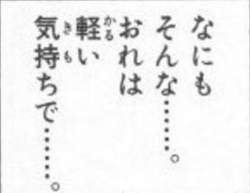 なにも
そんな……。
おれは
軽い
気持ちで……。